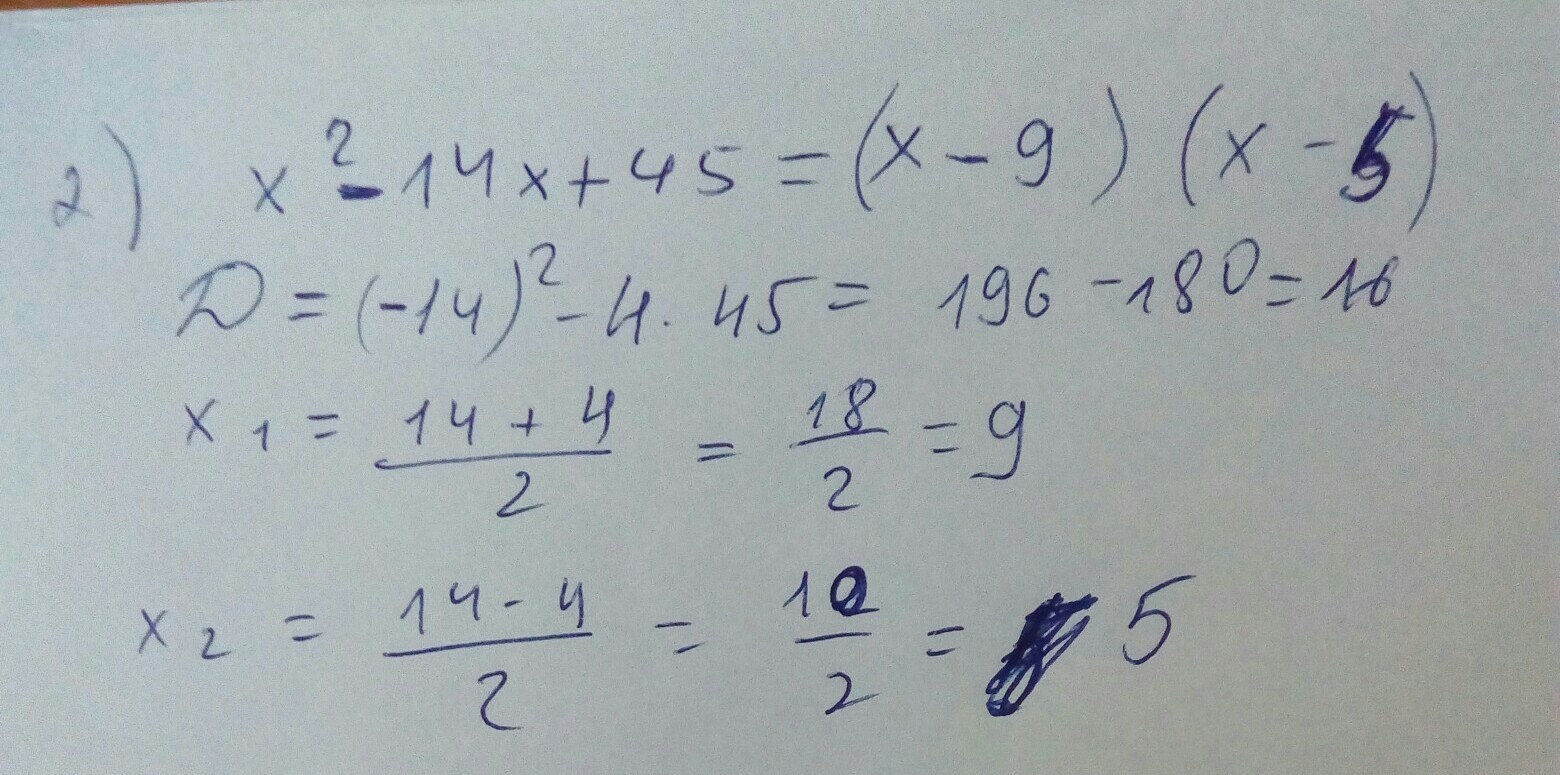 2) x² - 14x + 45 = (x - 9) (x - 5)
D = (-14)² - 4 · 45 = 196 - 180 = 16
x₁ = (14 + 4)/2 = 18/2 = 9
x₂ = (14 - 4)/2 = 10/2 = 5